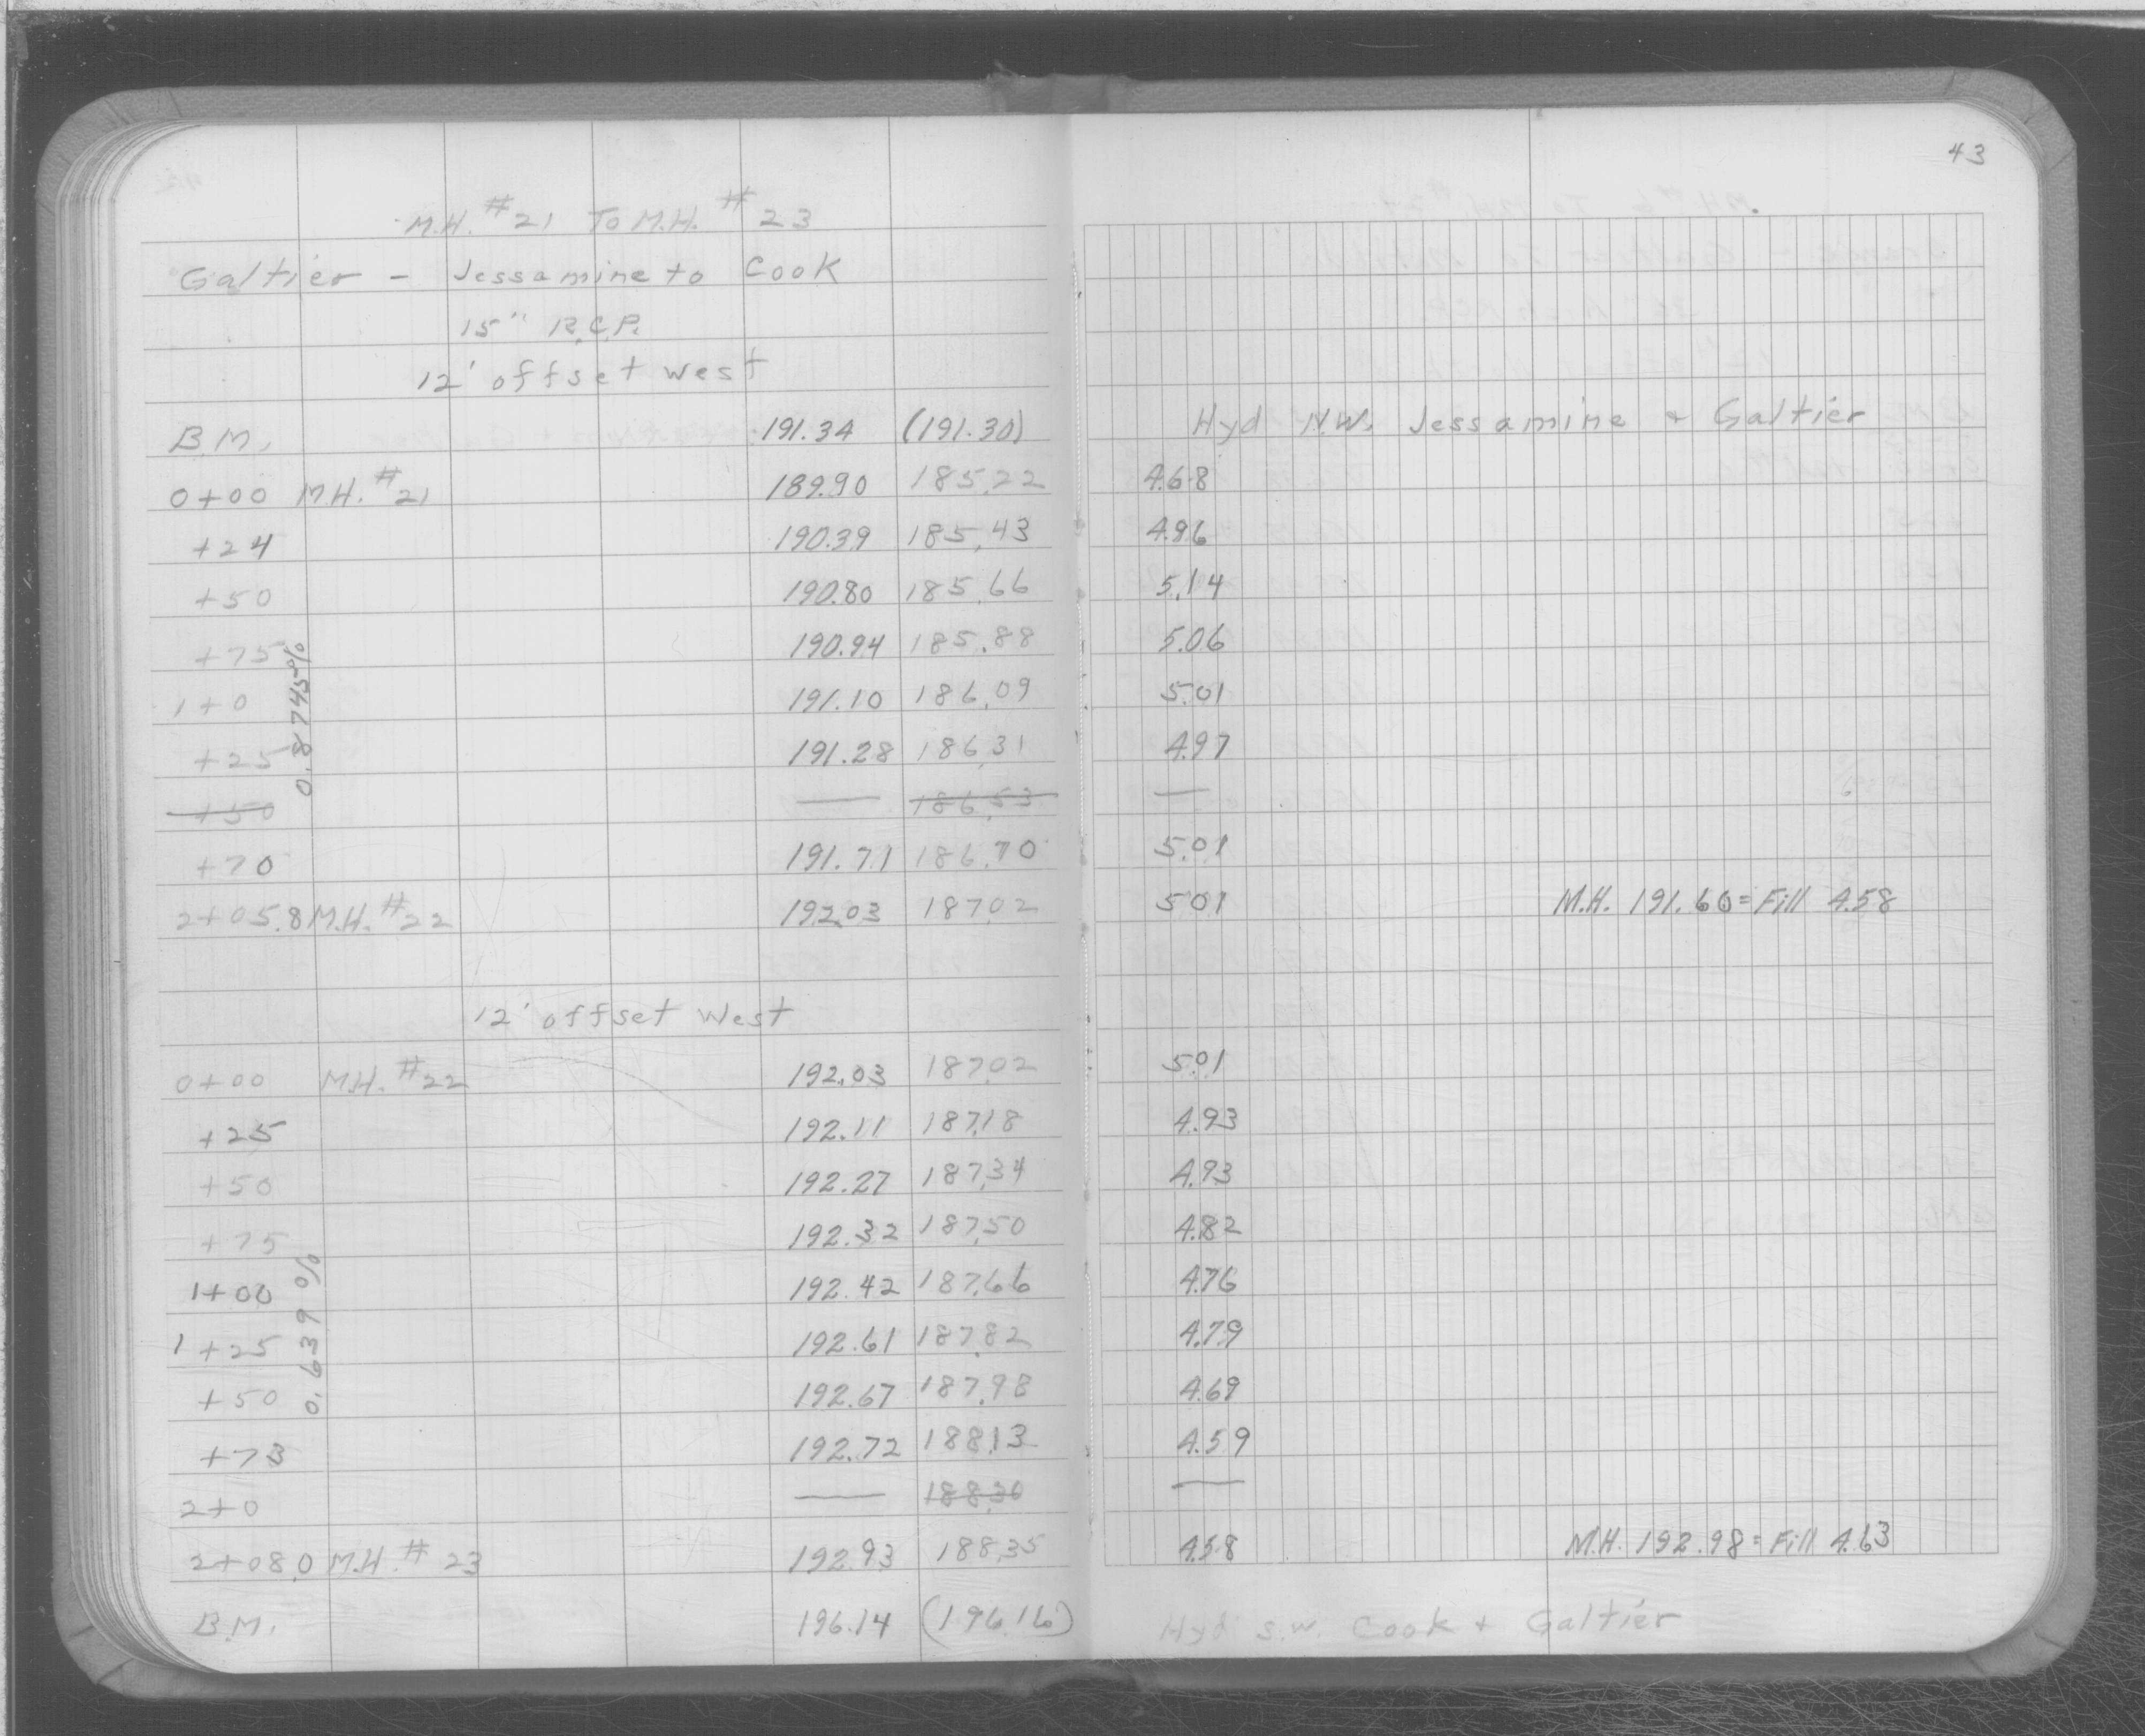 43
M.H. #21 To M.H. #23
Galtier - Jessamine to Cook
15" R.C.P.
12' offset west
B.M. 191.34 (191.30) Hyd N.W. Jessamine + Galtier
0+00 M.H. #21 189.90 185.22 4.68
+24 190.39 185.43 4.96
+50 190.80 185.66 5.14
+75 190.94 185.88 5.06
0.8745%
1+0 191.10 186.09 5.01
+25 191.28 186.31 4.97
+50 — 186.53 —
+70 191.71 186.70 5.01
2+05.8 M.H. #22 192.03 187.02 5.01 M.H. 191.60 = Fill 4.58
12' offset West
0+00 M.H. #22 192.03 187.02 5.01
+25 192.11 187.18 4.93
+50 192.27 187.34 4.93
+75 192.32 187.50 4.82
0.639%
1+00 192.42 187.66 4.76
1+25 192.61 187.82 4.79
+50 192.67 187.98 4.69
+73 192.72 188.13 4.59
2+0 — 188.30 —
2+08.0 M.H. #23 192.93 188.35 4.58 M.H. 192.98 = Fill 4.63
B.M. 196.14 (196.16) Hyd S.W. Cook + Galtier